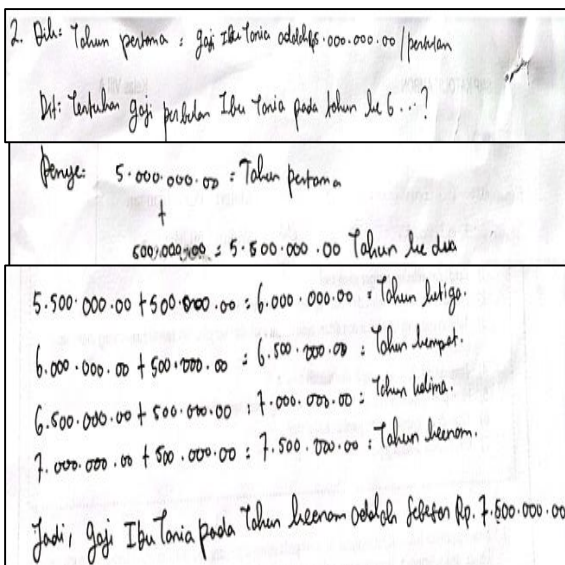 2. Dik: Tahun pertama : gaji Ibu Tania adalah 5.000.000.00 /perbulan
Dit: Tentukan gaji perbulan Ibu Tania pada tahun ke 6...?
Penye: 5.000.000.00 : Tahun pertama
+
500.000.00 : 5.500.000.00 Tahun ke dua
5.500.000.00 + 500.000.00 : 6.000.000.00 : Tahun ketiga.
6.000.000.00 + 500.000.00 : 6.500.000.00 : Tahun keempat.
6.500.000.00 + 500.000.00 : 7.000.000.00 : Tahun kelima.
7.000.000.00 + 500.000.00 : 7.500.000.00 : Tahun keenam.
Jadi, gaji Ibu Tania pada Tahun keenam adalah sebesar Rp. 7.500.000.00